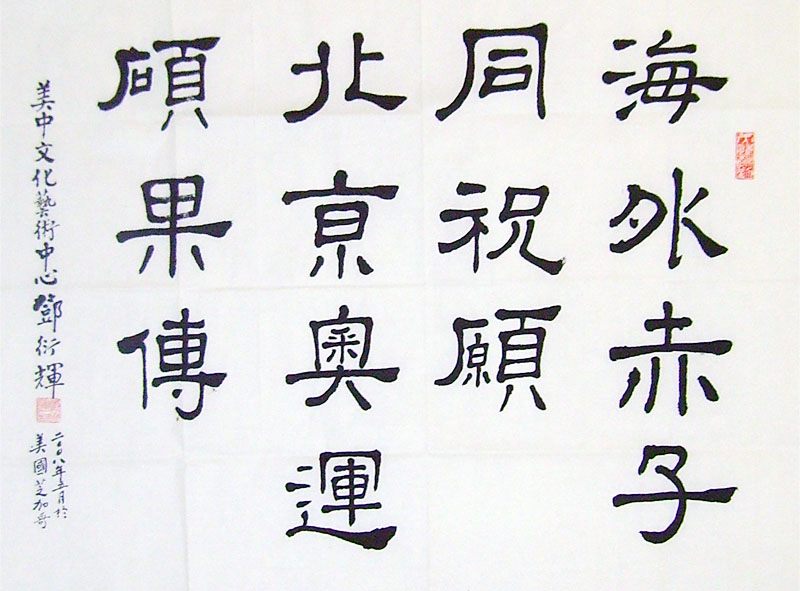 海外赤子
同祝願
北京奧運
碩果傳
美中文化藝術中心鄧衍輝
二〇〇八年五月於
美國芝加哥